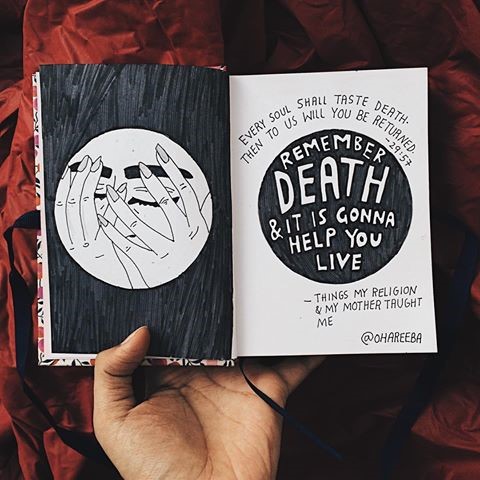 EVERY SOUL SHALL TASTE DEATH.
THEN TO US WILL YOU BE RETURNED.
-29:57
REMEMBER
DEATH
& IT IS GONNA
HELP YOU
LIVE
— THINGS MY RELIGION
& MY MOTHER TAUGHT
ME
@OHAREEBA